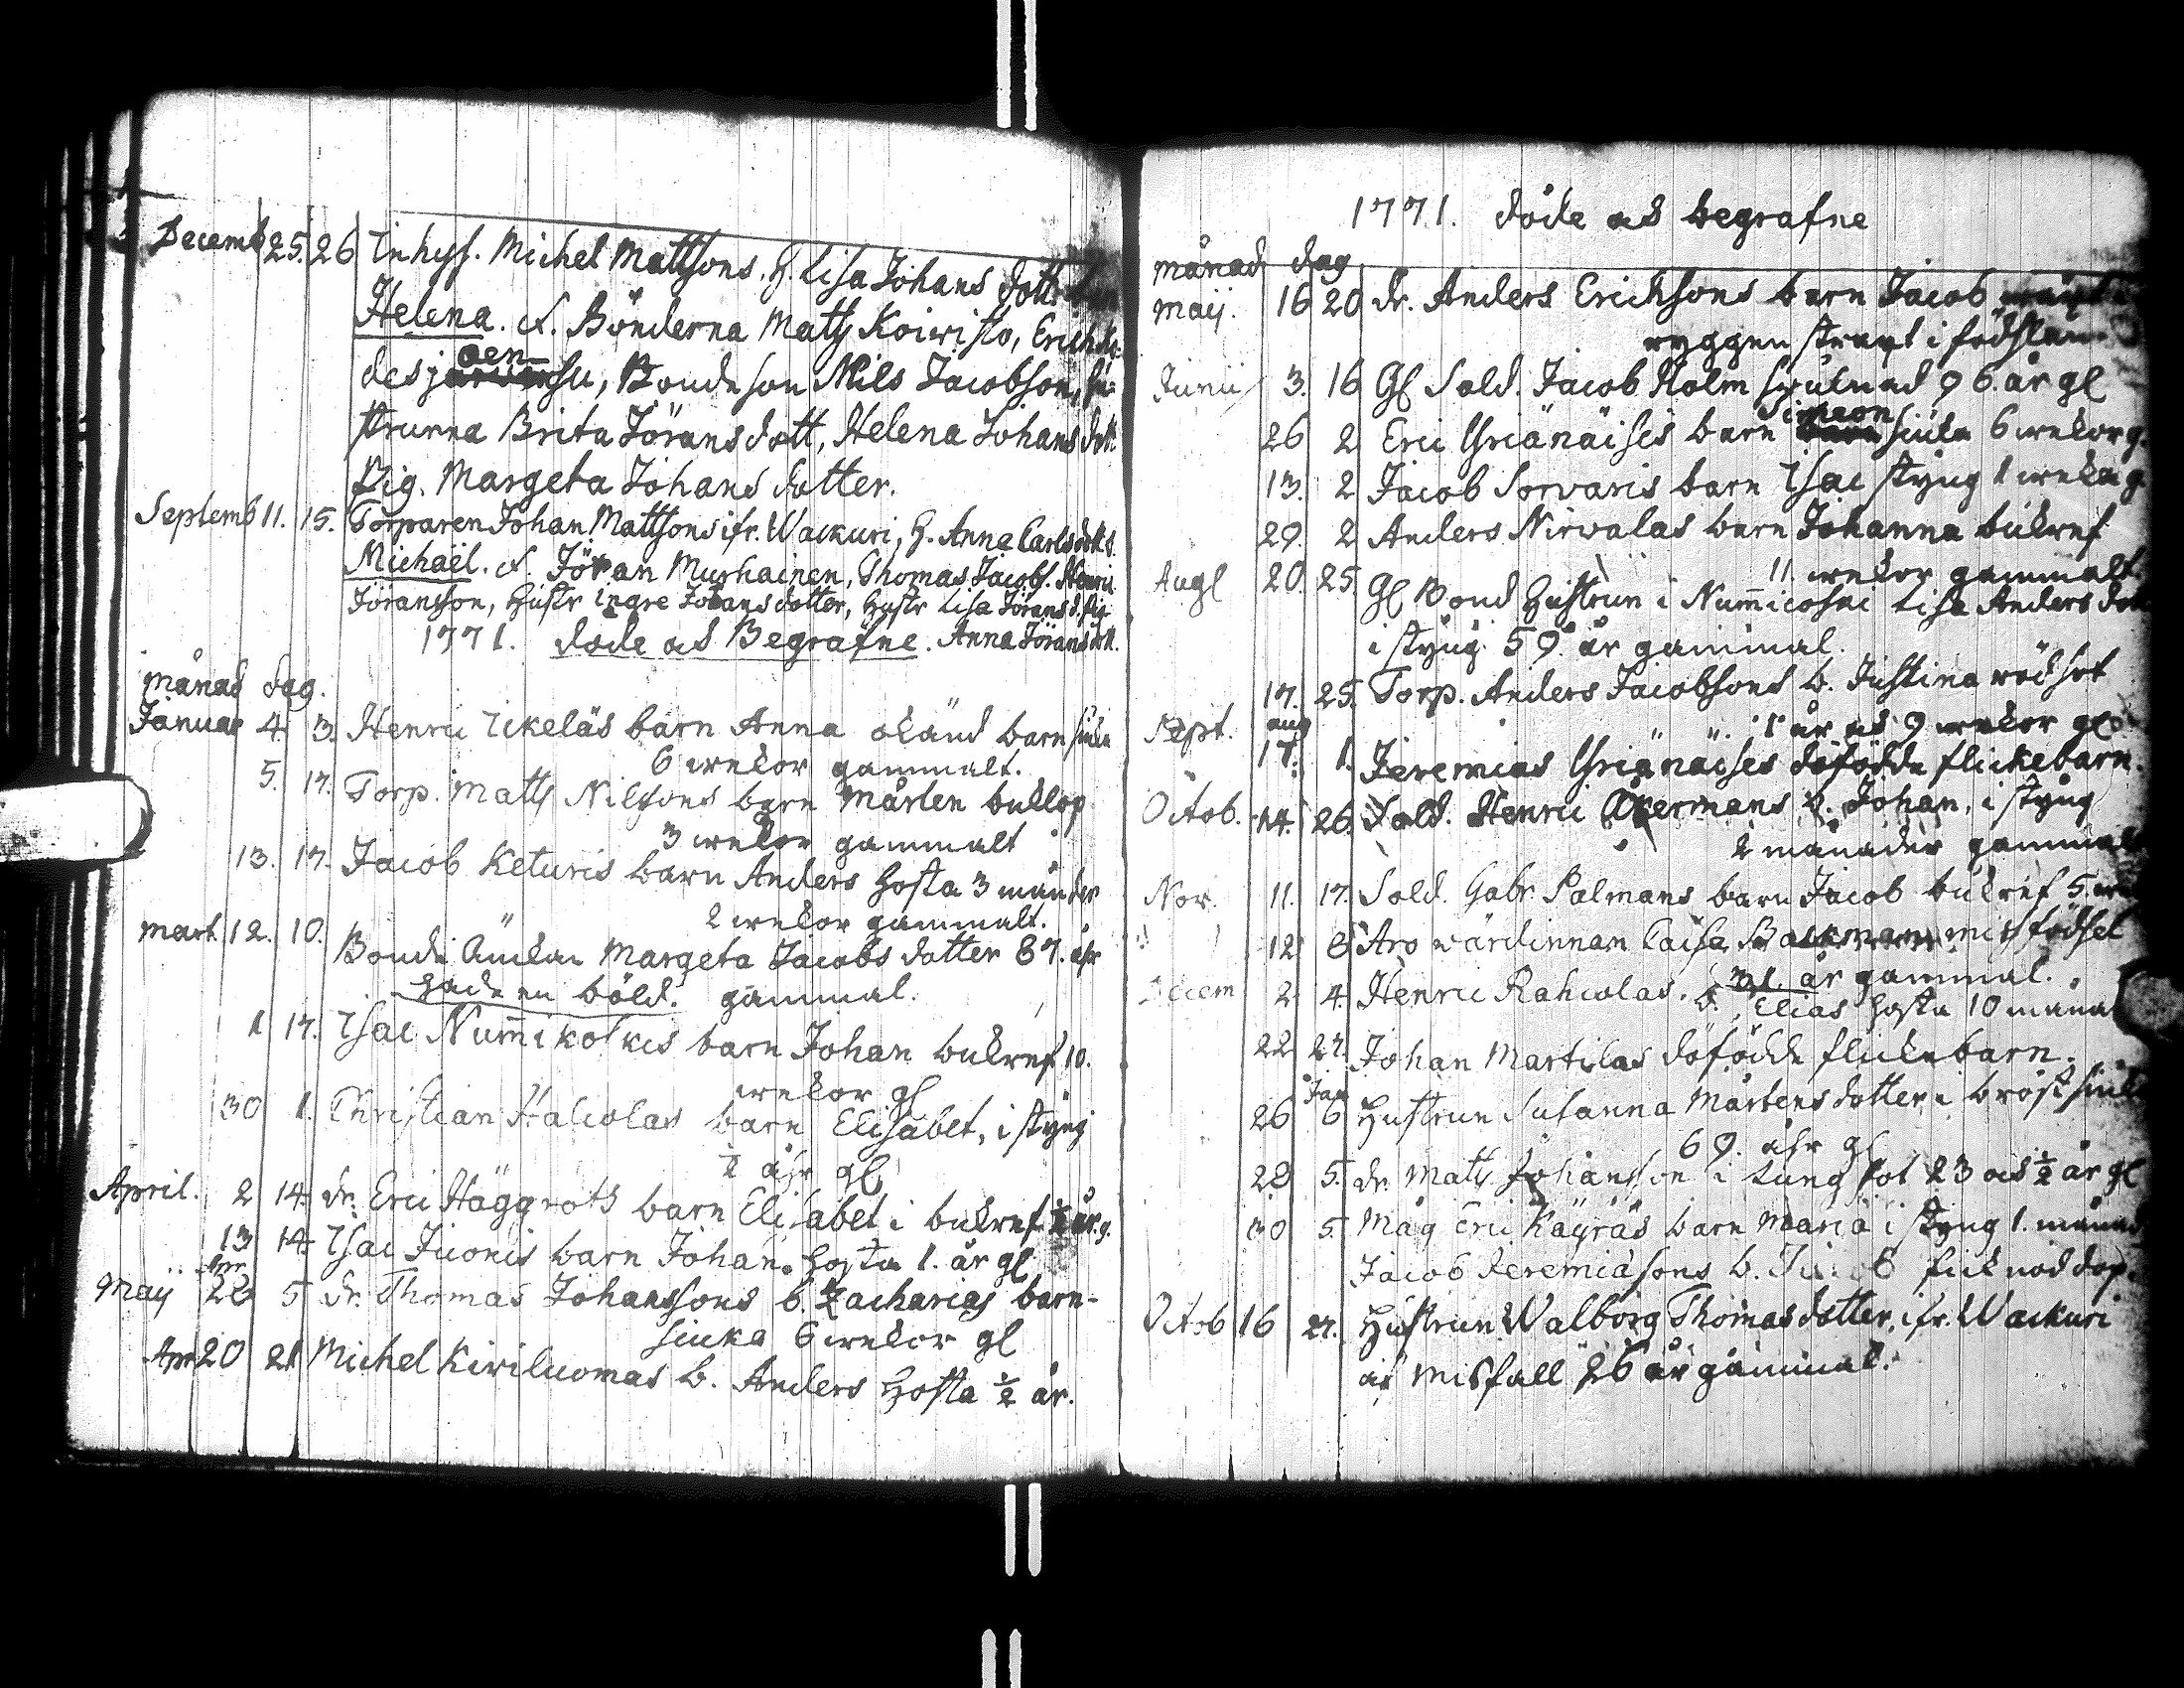 Decemb 25. 26 Inhys. Michel Mattsons. H. Lisa Johans dott
Helena. d. Bönderna Matts Koivisto, Erich
aen
desj su, Bonde son Nils Jacobson, hu-
strurna Brita Jörans dott, Helena Johans dott.
Pig. Margeta Johans dotter.
Septemb 11. 15. Torparen Johan Mattsons ifr. Wackuri, H. Anna Carls dott.
Michaël. d. Jöran Murhainen, Thomas Jacobs. Henric
Joransson, Hustr Ingre Johans dotter, Hustr Lisa Jörans d. pig
1771. döde ock Begrafne. Anna Jörans dott.
månad dag.
Januar 4. 3. Henric Ikeläs barn Anna okänd barn siuka
6 wekor gammalt.
5. 17. Torp. Matts Nilsons barn Mårten buklop
3 wekor gammalt
13. 17. Jacob Keturis barn Anders hosta 3 månder
2 wekor gammalt.
Mart. 12. 10. Bonde Änckan Margeta Jacobs dotter 87. åhr
hade en böld. gammal.
1 17. Isac Num̅ikoskis barn Johan bukref 10.
wekor gl
30 1. Christian Haliolas barn Elisabet, i styng
½ åhr gl
April. 2 14. dr. Eric Häggroths barn Elisabet i bukref ½ år. g.
13 14 Isac Jiconis barn Johan. hosta 1. år gl
Apr
Maij 28 5 dr. Thomas Johanssons b. Zacharias barn-
siuka 6 wekor gl
Apr 20 21 Michel Kiviluomas b. Anders hosta ½ år.
1771. döde ock begrafne
månad dag
Maij. 16 20 dr. Anders Ericksons barn Jacob
ryggen straxt i födslan.
Junii 3. 16 Gl Sold. Jacob Holm siuknad 96. år gl
Simeon
26 2 Eric Yrjänäises barn siuka 6 wekor g.
13. 2 Jacob Sorvaris barn Isac styng 1 weka g.
29. 2 Anders Nirvalas barn Johanna bukref
11. wekor gammalt
Augl 20. 25. Gl Bond Hustrun i Num̅icoski Lisa Anders dott
i styng 59. år gammal.
17. 25. Torp. Anders Jacobsons b. Justina rödsot
1 år ock 9 wekor gl
aug
Sept. 17. 1. Jeremias Yrjänäises döfödde flickebarn.
Octob. 14. 26. Sold. Henric Åkermans b. Johan, i styng
2 månader gammalt
Nov. 11. 17. Sold. Gabr. Palmans barn Jacob bukref 5. wek
12 8 Aro wärdinnan Caisa Backman misfödsel
31. år gammal.
Decem 2 4. Henric Rahcolas. b. Elias hosta 10 måna
22 27. Johan Martilas döfödde flicke barn.
Jan
26 6 Hustrun Susanna Mårtens dotter i bröst siuk
69. åhr gl
28 5. dr. Matts Johansson i lung sot 23 ock ½ år gl
30 5. Måg Eric Käyräs barn Maria i styng 1. månad
Jacob Jeremiasons b. fick nöd dop.
Octob 16 27. Hustrun Walborg Thomas dotter, ifr. Wackuri
af misfall 26 år gammal.